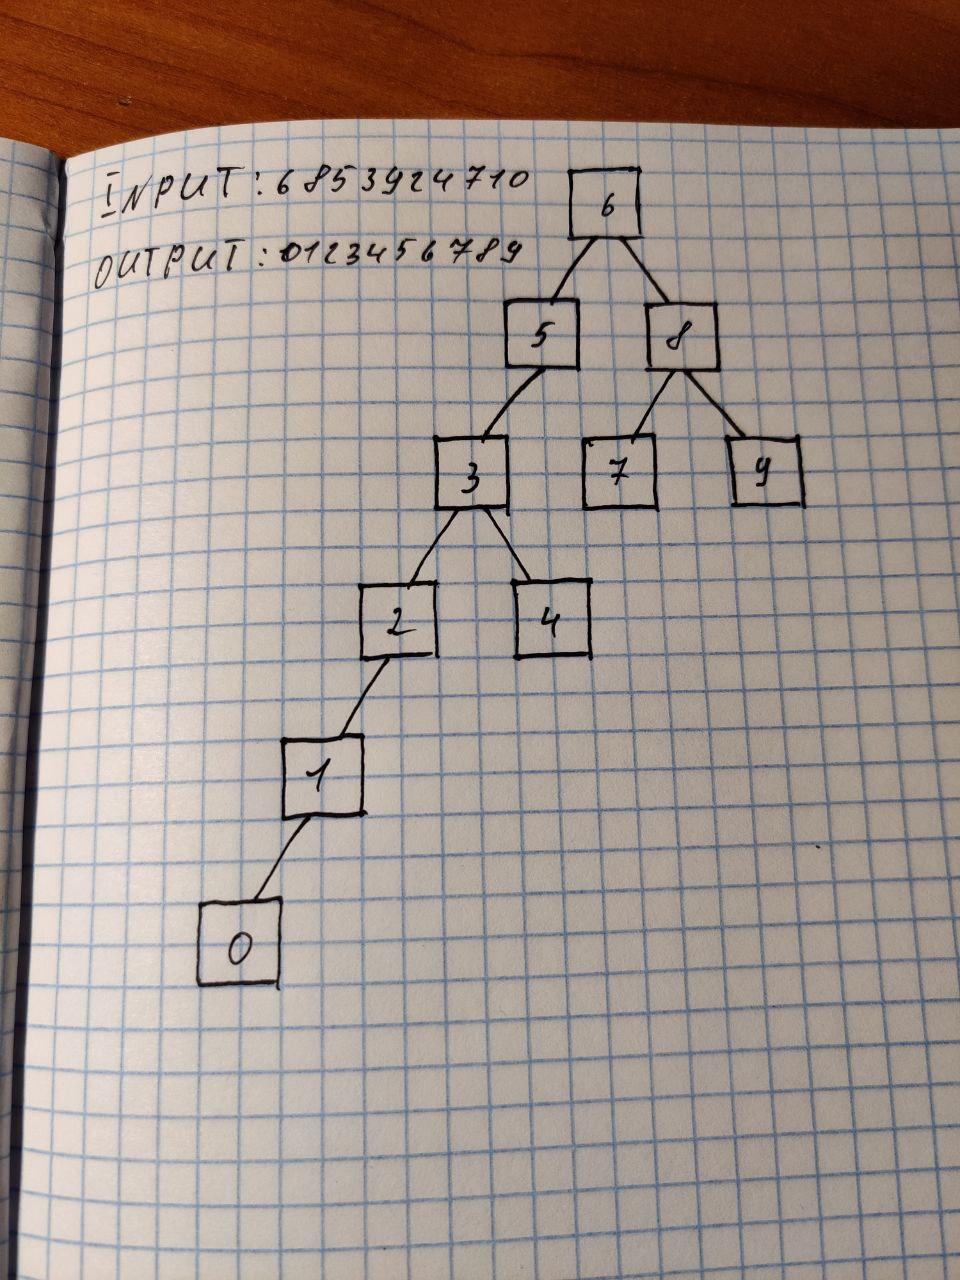 INPUT: 6853924710
OUTPUT: 0123456789
6
5 8
3 7 9
2 4
1
0